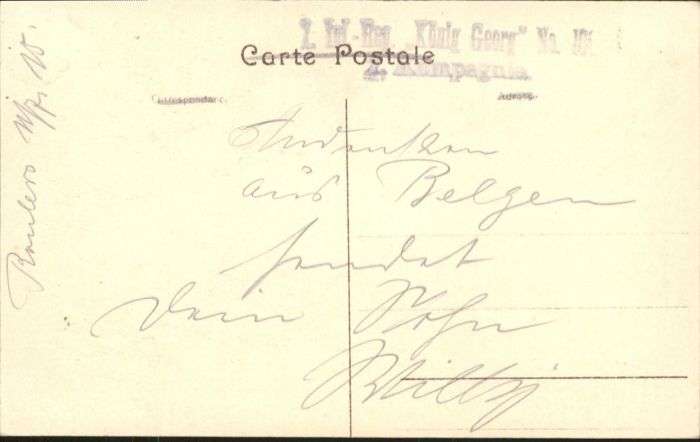 7. Inf.-Reg. „König Georg" No. 106
Kompagnie
Carte Postale
Correspondance
Adresse
Andenken
aus Belgen
sendet
Dein Sohn
Willy
Roulers